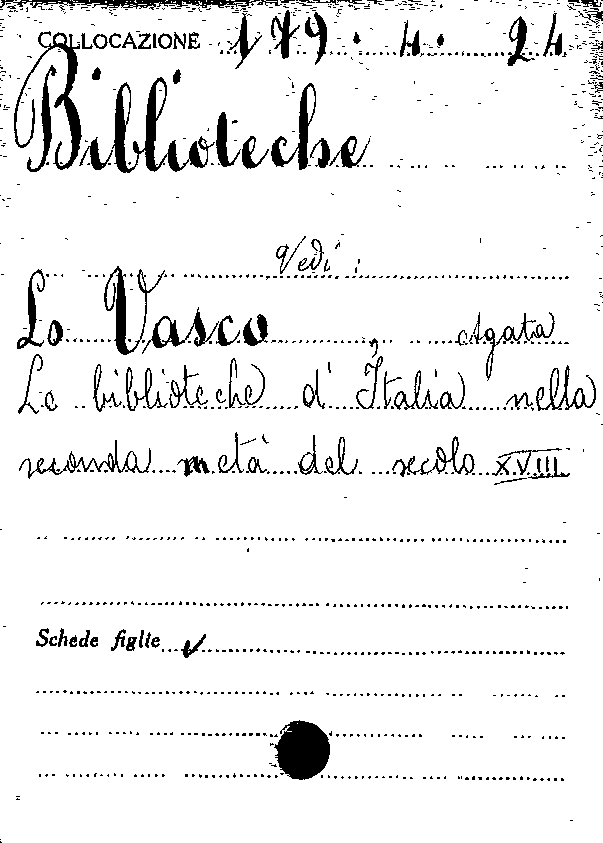 COLLOCAZIONE 179.4.24
Biblioteche
Vedi:
Lo Vasco Agata
Le biblioteche d'Italia nella
seconda metà del secolo XVIII
Schede figlie ✓